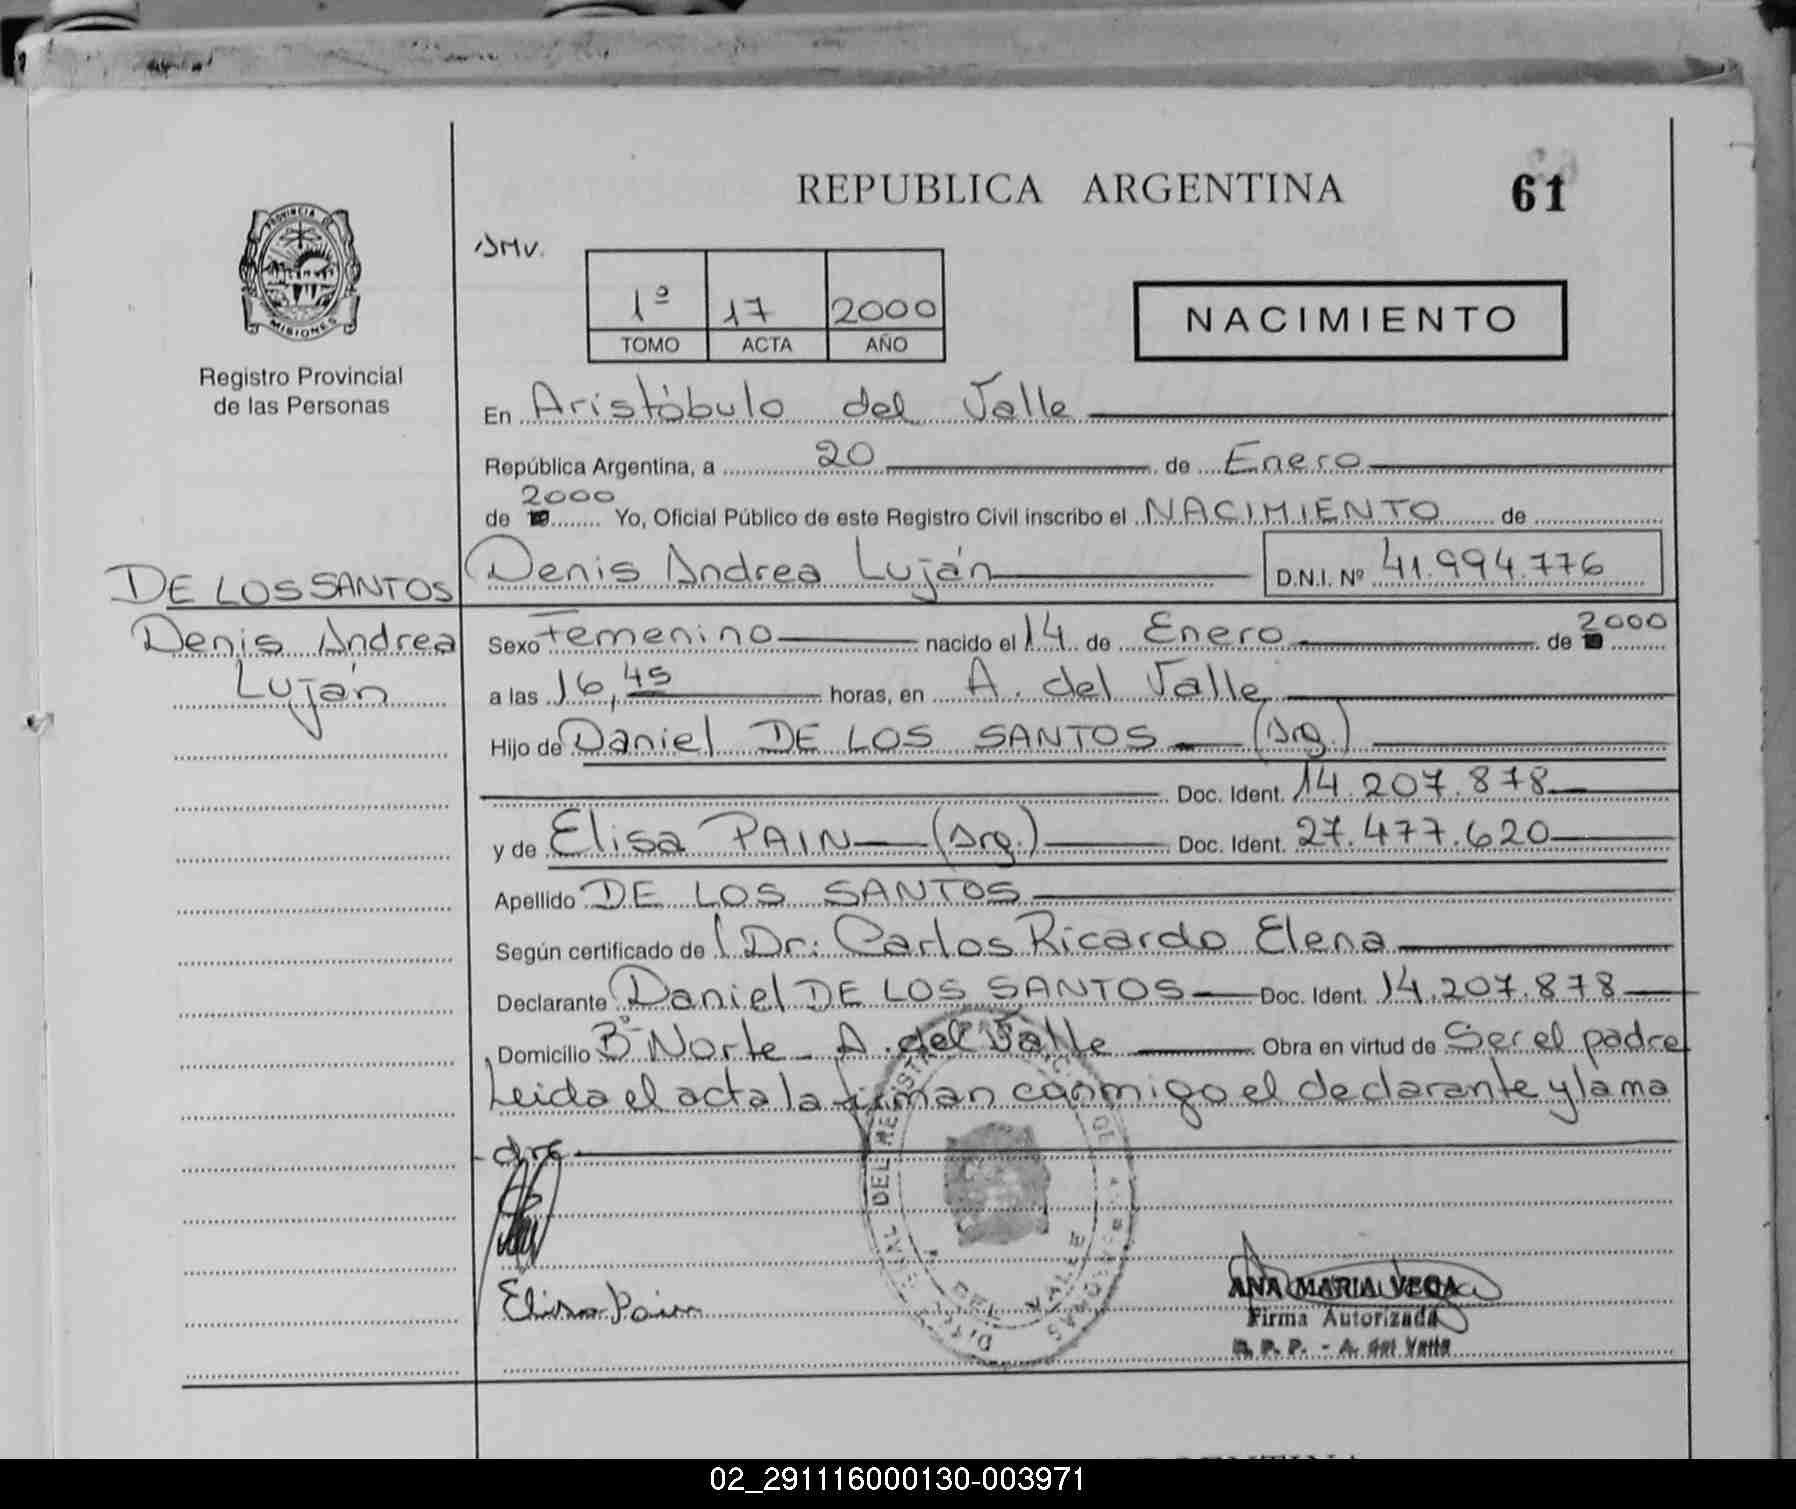 REPUBLICA ARGENTINA
61
PROVINCIA DE
MISIONES
Registro Provincial
de las Personas
1º 17 2000
TOMO ACTA AÑO
NACIMIENTO
En Aristóbulo del Valle
República Argentina, a 20 de Enero
2000
de Yo, Oficial Público de este Registro Civil inscribo el NACIMIENTO de
Denis Andrea Luján D.N.I. Nº 41.994.776
DE LOS SANTOS
Denis Andrea
Luján
Sexo Femenino nacido el 14 de Enero de 2000
a las 16,45 horas, en A. del Valle
Hijo de Daniel DE LOS SANTOS (Arg.)
Doc. Ident. 14.207.878
y de Elisa PAIN (Arg.) Doc. Ident. 27.477.620
Apellido DE LOS SANTOS
Según certificado de Dr: Carlos Ricardo Elena
Declarante Daniel DE LOS SANTOS Doc. Ident. 14.207.878
Domicilio Bº Norte - A. del Valle Obra en virtud de Ser el padre
Leida el acta la firman conmigo el declarante y la ma
dre
Elisa Pain
ANA MARIA VEGA
Firma Autorizada
R. P. P. - A. del Valle
02_291116000130-003971